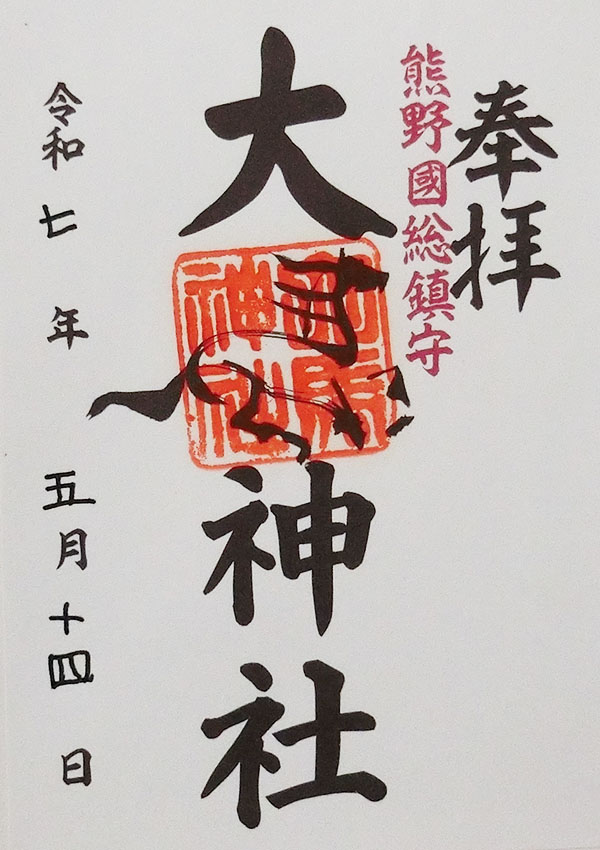 奉拝
熊野國総鎮守
大馬神社
令和七年五月十四日